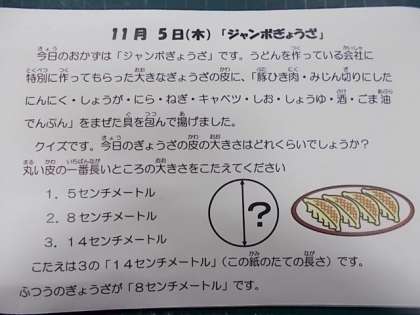 11月 5日(木) 「ジャンボぎょうざ」
今日のおかずは「ジャンボぎょうざ」です。うどんを作っている会社に
特別に作ってもらった大きなぎょうざの皮に、「豚ひき肉・みじん切りにした
にんにく・しょうが・にら・ねぎ・キャベツ・しお・しょうゆ・酒・ごま油
でんぷん」をまぜた具を包んで揚げました。
クイズです。今日のぎょうざの皮の大きさはどれくらいでしょうか？
丸い皮の一番長いところの大きさをこたえてください
1．5センチメートル
2．8センチメートル
3．14センチメートル
?
こたえは3の「14センチメートル」（この紙のたての長さ）です。
ふつうのぎょうざが「8センチメートル」です。